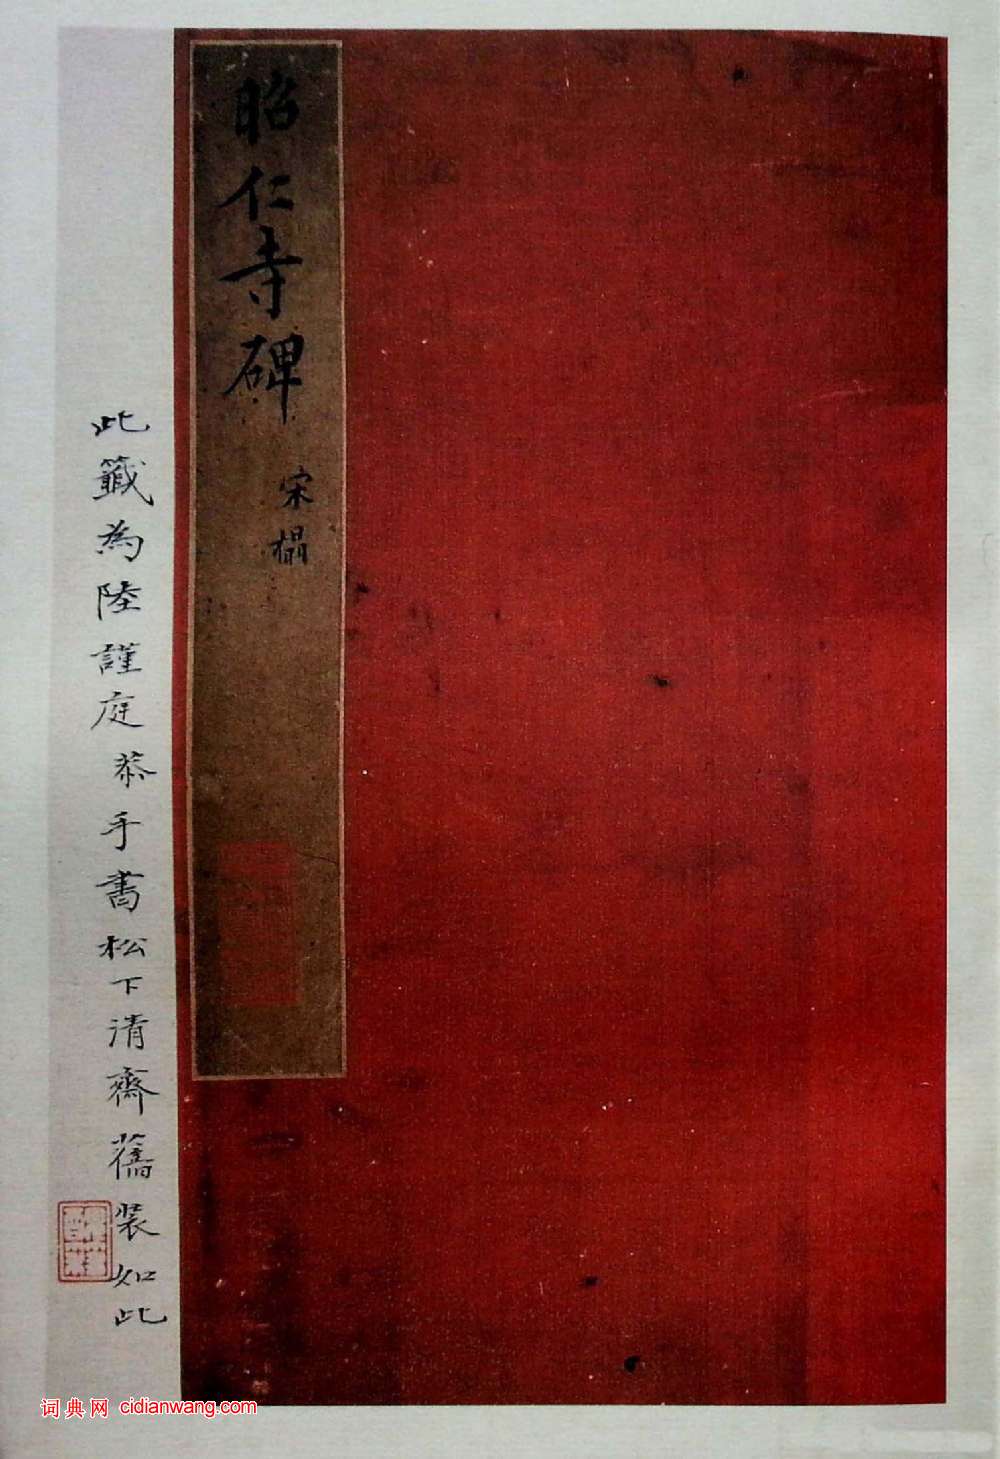 昭仁寺碑
宋榻
此籤為陸謹庭恭手書松下清齋舊裝如此
词典网 cidianwang.com